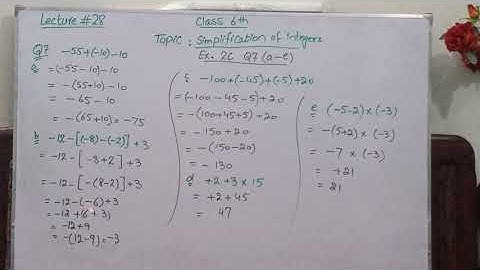 Lecture #28
Class 6th
Topic: Simplification of Integers
Ex. 2C Q7 (a-e)
Q7 -55+(-10)-10
a = (-55-10)-10
= -(55+10)-10
= -65-10
= -(65+10) = -75
b -12-[(-8)-(-2)]+3
= -12-[-8+2]+3
= -12-[-(8-2)]+3
= -12-(-6)+3
= -12+(6+3)
= -12+9
= -(12-9) = -3
c -100+(-45)+(-5)+20
= (-100-45-5)+20
= -(100+45+5)+20
= -150+20
= -(150-20)
= -130
d +2+3×15
= +2+45
= 47
e (-5-2)×(-3)
= -(5+2)×(-3)
= -7×(-3)
= +21
= 21